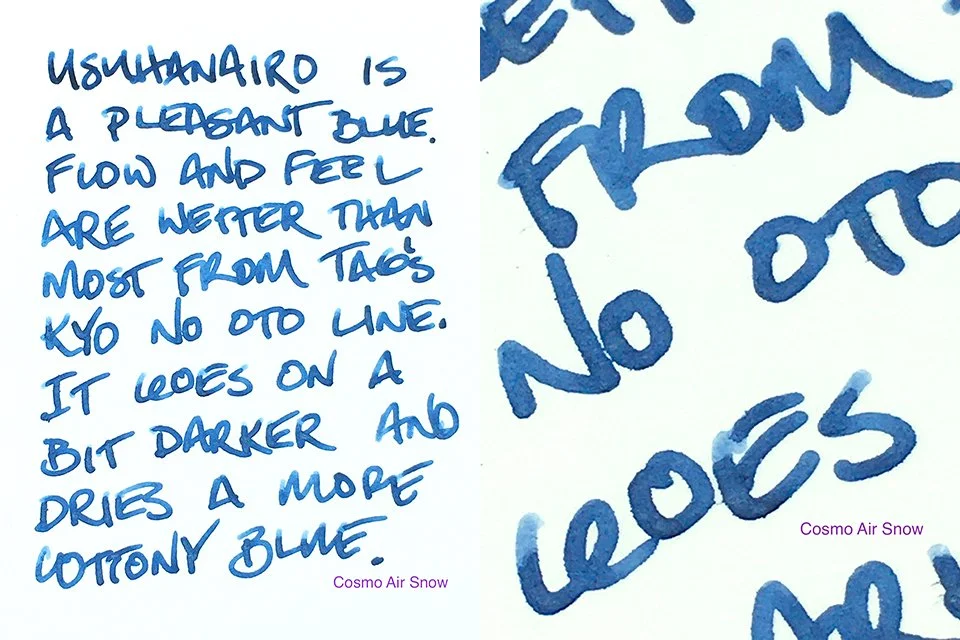 USUHANAIRO IS
A PLEASANT BLUE.
FLOW AND FEEL
ARE WETTER THAN
MOST FROM TAG'S
KYO NO OTO LINE.
IT GOES ON A
BIT DARKER AND
DRIES A MORE
COTTONY BLUE.
Cosmo Air Snow
FROM
NO OTO
GOES
Cosmo Air Snow